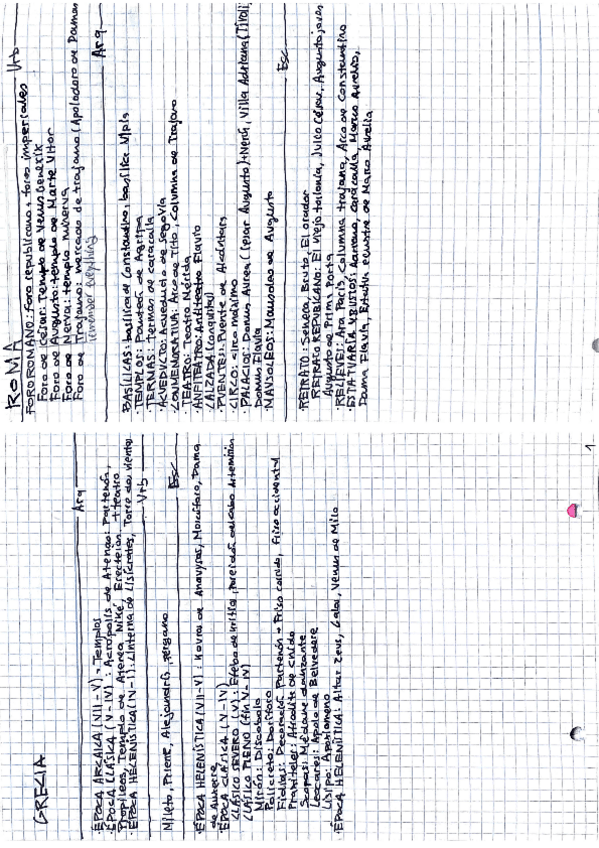 GRECIA
Arq
·ÉPOCA ARCAICA (VII-V): Templos
·ÉPOCA CLÁSICA (V-IV): Acrópolis de Atenas: Partenón,
Propileos, Templo de Atenea Niké, Erecteion + teatro
·ÉPOCA HELENÍSTICA (IV-I): Linterna de Lisícrates, Torre de los vientos
Urb
Mileto, Priene, Alejandría, Pérgamo
Esc
·ÉPOCA HELENÍSTICA (VII-V): Kouros de Anavysos, Moscóforo, Dama
de Auxerre
·ÉPOCA CLÁSICA (V-IV)
CLÁSICO SEVERO (V): Efebo de Kritios, Poseidón del cabo Artemisión
CLÁSICO PLENO (fin V-IV)
Mirón: Discóbolo
Policleto: Doríforo
Fidias: Decoración Partenón → Friso corrido, friso occidental
Praxíteles: Afrodita de Cnido
Scopas: Ménade danzante
Leocares: Apolo de Belvedere
Lisipo: Apoxiomeno
·ÉPOCA HELENÍSTICA: Altar Zeus, Galos, Venus de Milo
1
ROMA
Urb
FORO ROMANO: foro republicano + foros imperiales
Foro de César: Templo de Venus Genetrix
Foro de Augusto: templo de Marte Vítor
Foro de Nerva: templo Minerva
Foro de Trajano: mercado de trajano (Apolodoro de Damasco
remember everything
Arq
BASÍLICAS: basílica de Constantino, basílica Ulpia
·TEMPLOS: Panteón de Agripa
·TERMAS: Termas de caracalla
·ACUEDUCTO: Acueducto de Segovia
·CONMEMORATIVA: Arco de Tito, Columna de Trajano
·TEATRO: Teatro Mérida
·ANFITEATRO: Anfiteatro Flavio
CALZADA:
·PUENTES: Puente de Alcántara
·CIRCO: circo máximo
·PALACIOS: Domus Aurea (César Augusto)+Nerón, Villa Adriana (Tívoli)
Domus Flavia
·MAUSOLEOS: Mausoleo de Augusto
Esc
·RETRATO: Seneca, Bruto, El orador
RETRATO REPUBLICANO: El viejo torlonia, Julio César, Augusto joven
Augusto de Prima Porta
·RELIEVES: Ara Pacis, Columna trajana, Arco de Constantino
ESTATUARIA Y BUSTOS: Adriano, Caracalla, Marco Aurelio,
Dama Flavia, Estatua ecuestre de Marco Aurelio